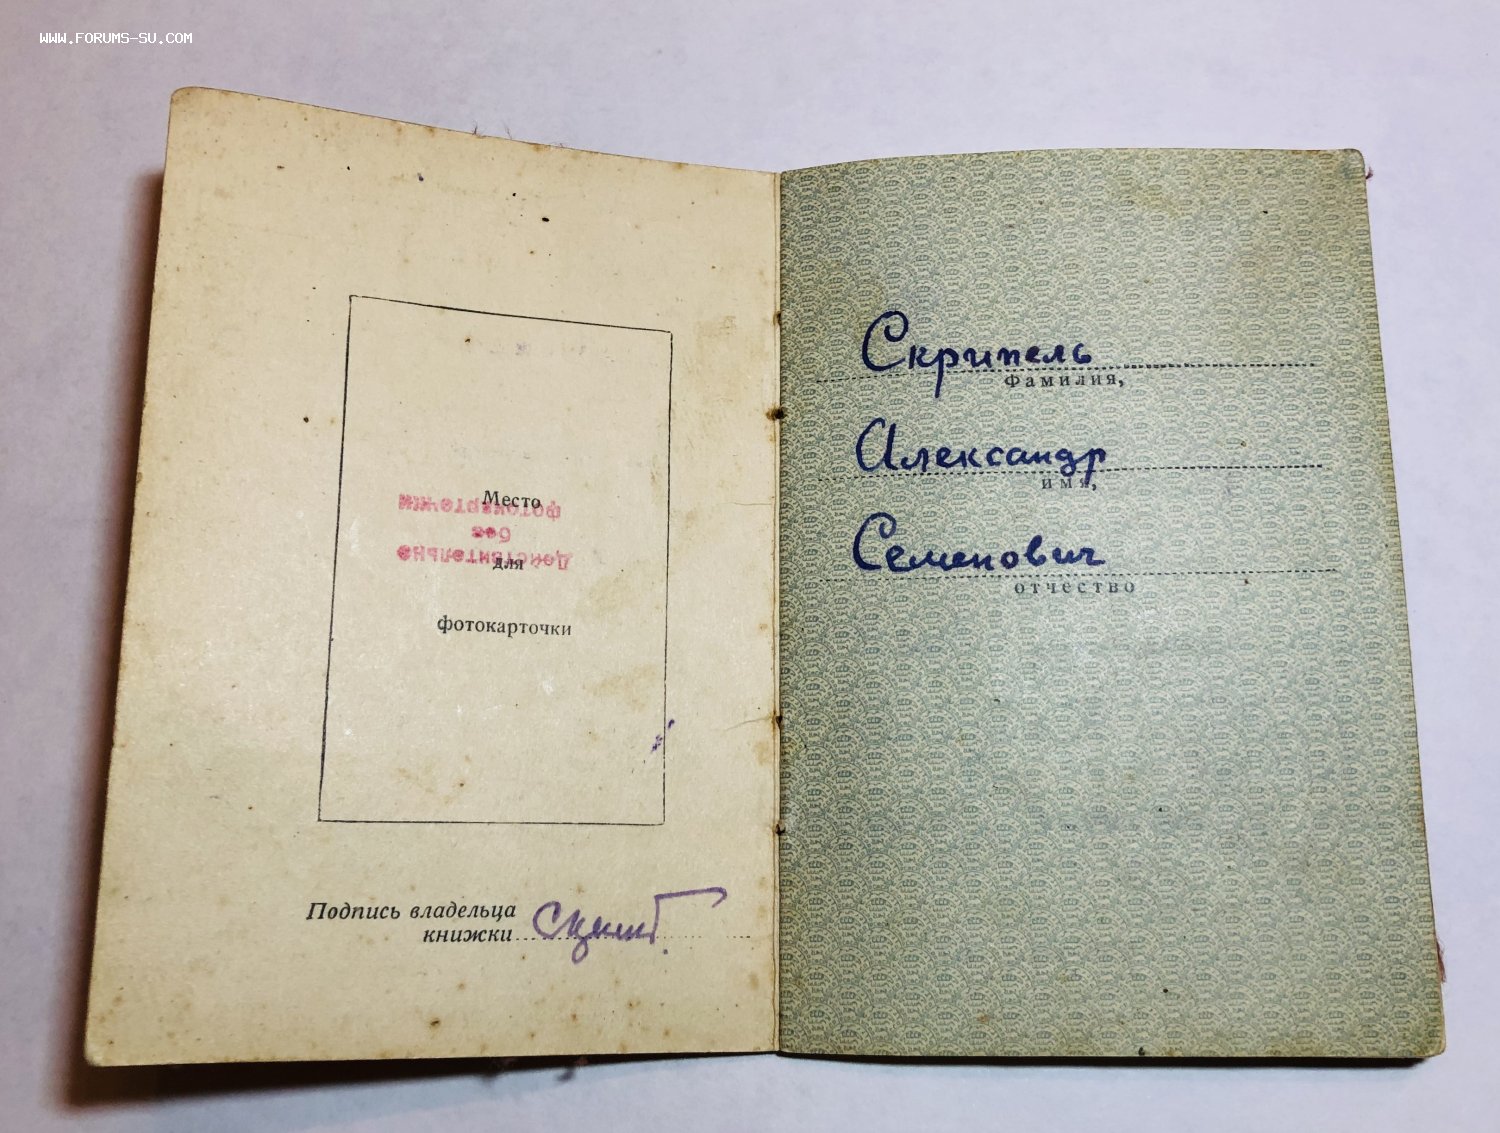 WWW.FORUMS-SU.COM
Место
для
фотокарточки
Действительно
без
фотокарточки
Подпись владельца
книжки
Скрипель
Фамилия,
Александр
имя,
Семенович
отчество